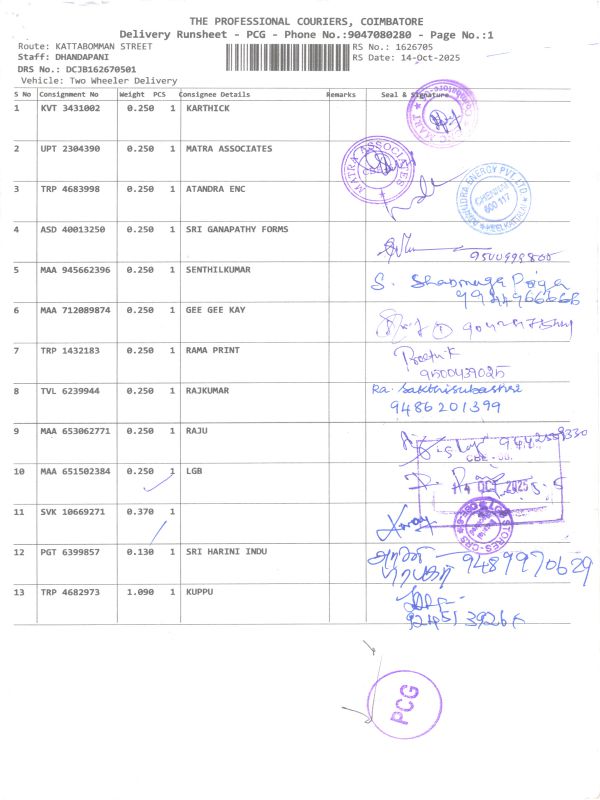 THE PROFESSIONAL COURIERS, COIMBATORE
Delivery Runsheet - PCG - Phone No.:9047080280 - Page No.:1
Route: KATTABOMMAN STREET RS No.: 1626705
Staff: DHANDAPANI RS Date: 14-Oct-2025
DRS No.: DCJB162670501
Vehicle: Two Wheeler Delivery
S No Consignment No Weight PCS Consignee Details Remarks Seal & Signature
1 KVT 3431002 0.250 1 KARTHICK
2 UPT 2304390 0.250 1 MATRA ASSOCIATES
MATRA ASSOCIATES
3 TRP 4683998 0.250 1 ATANDRA ENC
ATANDRA ENERGY PVT. LTD.
CHENNAI
600 117
4 ASD 40013250 0.250 1 SRI GANAPATHY FORMS
5 MAA 945662396 0.250 1 SENTHILKUMAR
S. Shanmuga Priya
6 MAA 712089874 0.250 1 GEE GEE KAY
7 TRP 1432183 0.250 1 RAMA PRINT
9500439025
8 TVL 6239944 0.250 1 RAJKUMAR
9486201399
9 MAA 653062771 0.250 1 RAJU
10 MAA 651502384 0.250 1 LGB
14 OCT 2025
11 SVK 10669271 0.370 1
12 PGT 6399857 0.130 1 SRI HARINI INDU
9489970629
13 TRP 4682973 1.090 1 KUPPU
PCG